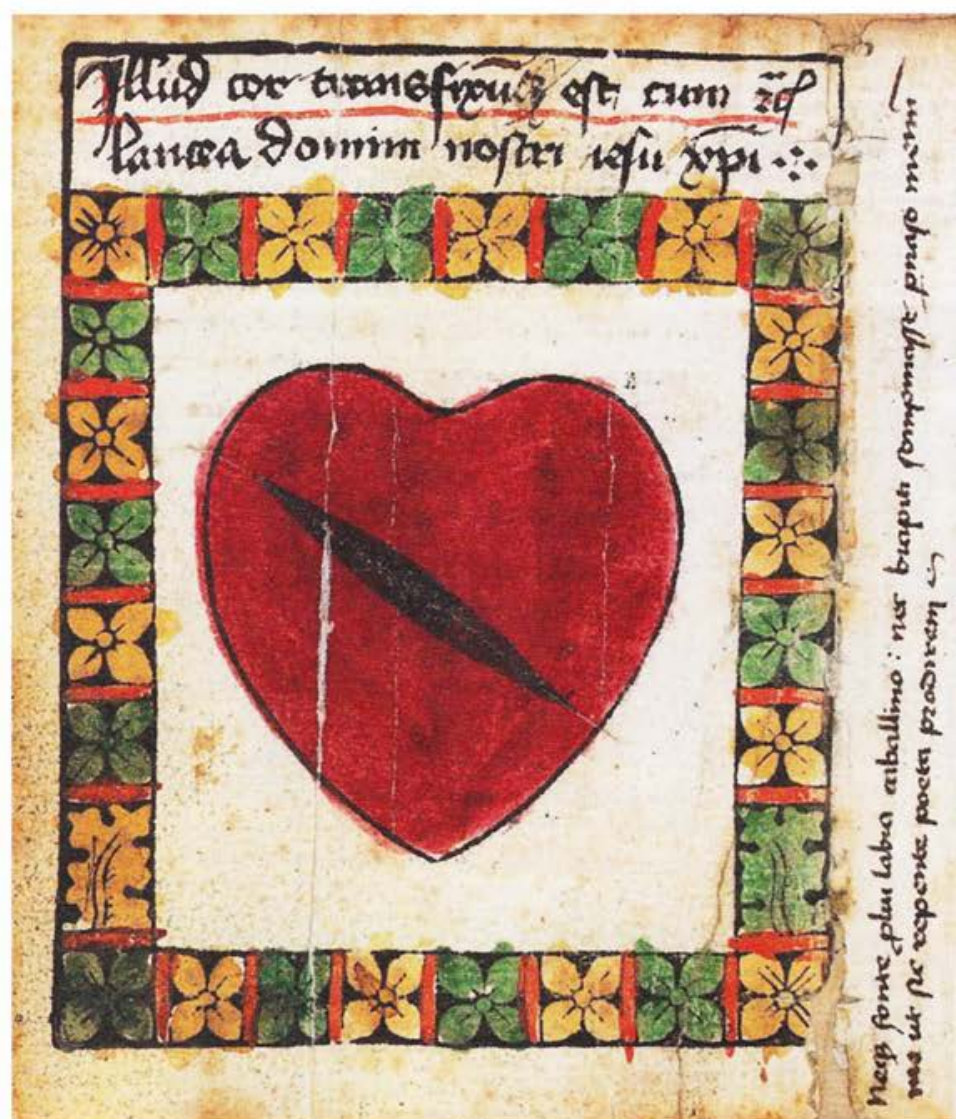 Illud cor transfixūꝫ est cum
lancea domini nostri iesu xp̄i
Neqꝫ fonte ꝓlui labra caballino : nec bicipiti sompniasse ꝑnaso memi
me ut sic repente poeta prodirem